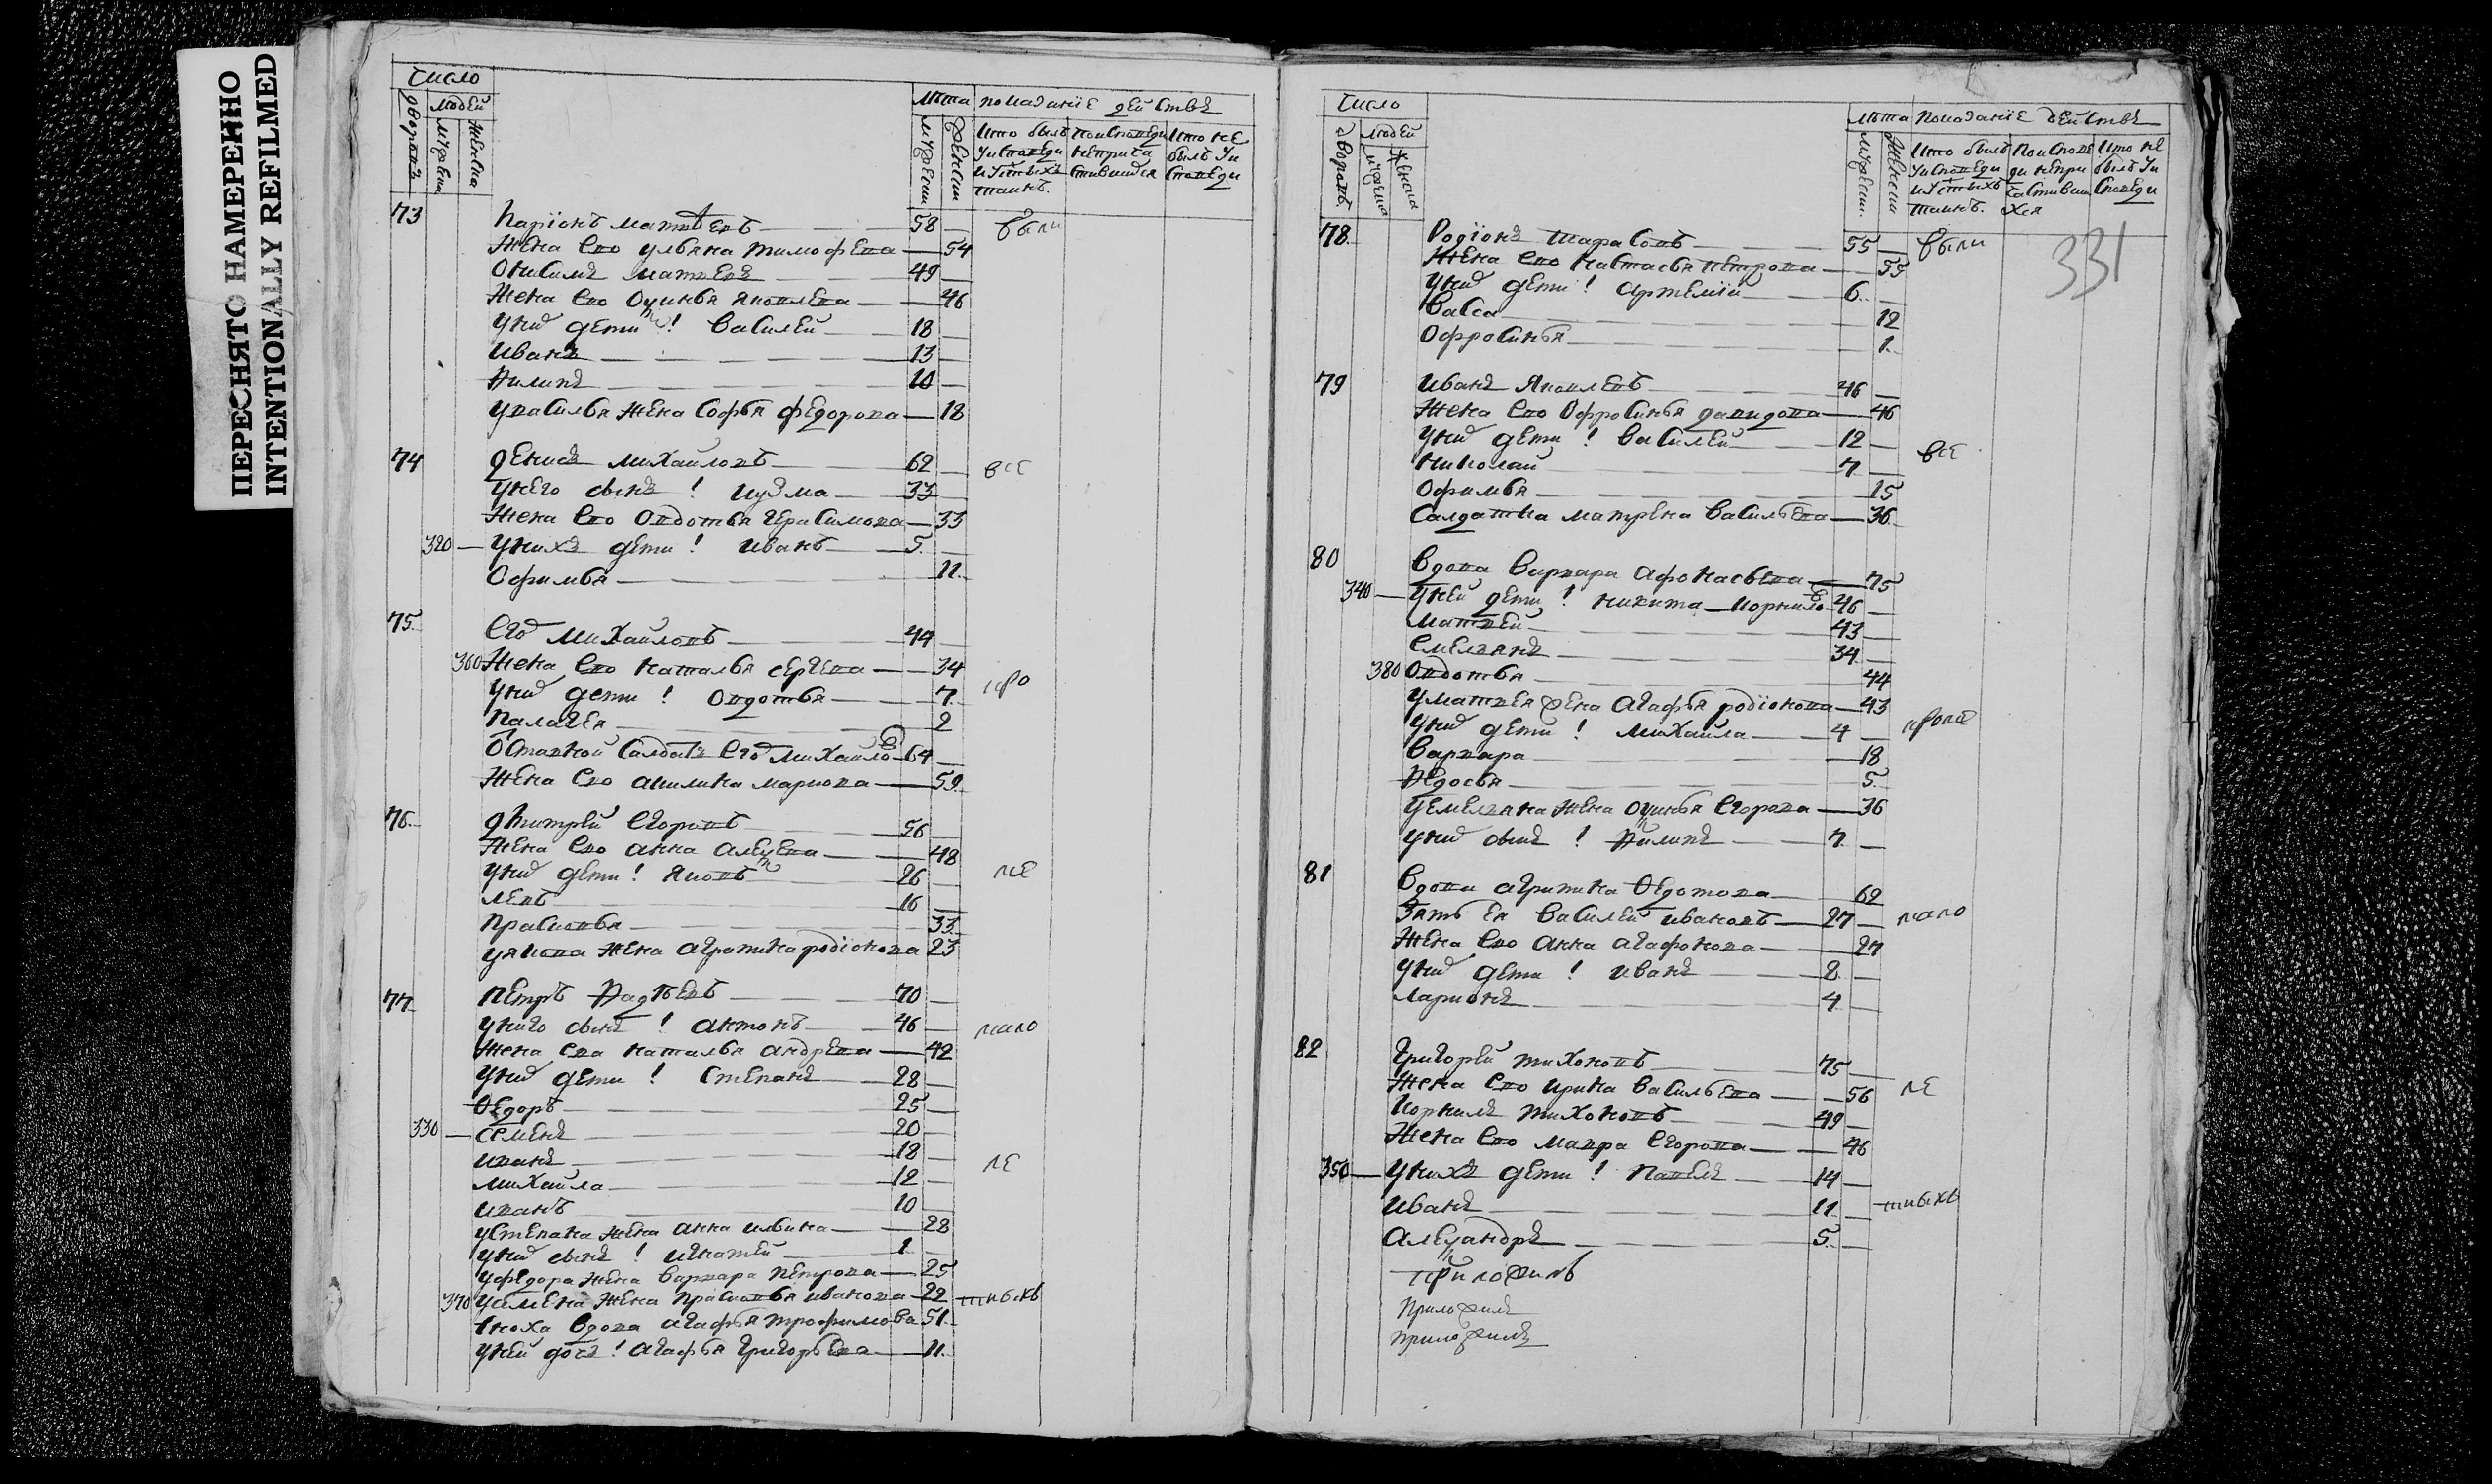 ПЕРЕСНЯТО НАМЕРЕННО
INTENTIONALLY REFILMED
число
дворовъ
людей
мужеска
женска
лѣта
показанïе действъ
мужески
женски
Кто былъ
уисповеди
иустыхъ
таинъ.
поисповеди
неприча
стившися
кто не
былъ уи
споведи
73 Ларïонъ матвѣевъ 58 были
Жена Его ульяна тимофѣева 54
Онисимъ матвевъ 49
Жена Его Оксинья яковлева 46
Уних дети! Василей 18
Иванъ 13
Филипъ 10
Увасилья жена Софья федорова 18
74 денисъ михаиловъ 62 все
Унего сынъ! кузма 33
Жена Его Овдотья герасимова 33
320 Унихъ дети! иванъ 5
Офимья 11
75 Его михаиловъ 44
360 Жена Его наталья сергева 34 про
Уних дети! Овдотья 7
Палагея 2
Оставной салдатъ Его михаило 64
Жена Его акилина маркова 59
76 дмитрей Егоровъ 56
Жена Его анна алексева 48
Уних дети! яковъ 26 пе
левъ 16
Прасковья 33
уякова жена агрипина родïонова 23
77 петръ Фадѣевъ 70
унего сынъ! антонъ 46 пало
Жена Ева наталья андрева 42
Уних дети! Степанъ 28
Федоръ 25
330 семенъ 20
иванъ 18 пе
михаила 12
иванъ 10
устепана жена анна ильина 28
уних сынъ! игнатей 1
уфедора жена варвара петрова 25
370 усемена жена прасковья иванова 22 тивыхъ
сноха вдова агафья трофимова 51
уней дочь! агафья григорьева 11
число
дворовъ
людей
мужеска
женска
лѣта
показанïе действъ
мужески.
женски
Кто былъ
уисповеди
иустыхъ
таинъ.
поиспове
ди непри
частивши
хся
кто не
былъ уи
споведи
331
78 Родïонъ тарасовъ 55 были
Жена Его настасья петрова 55
Уних дети! артемïй 6
Васса 12
Офросинья 1
79 иванъ яковлевъ 46
Жена Его Офросинья давидова 46
Уних дети! василей 12 все
николай 7
Офимья 15
Салдатка матрена васильева 36
80 Вдова варвара афонасьева 75
340 Уней дети! никита корнило 46
матвей 43
Емелянъ 34
380 Овдотья 44
Уматвея жена агафья родïонова 43
Уних дети! михаила 4 кропе
Варвара 18
Федосья 5
Уемеляна жена Оксинья Егорова 36
Уних сынъ! Филипъ 7
81 Вдова агрипина Федотова 62
Зять ея василей ивановъ 27 пало
Жена Его анна агафонова 27
Уних дети! иванъ 8
ларионъ 4
82 Григорей тихоновъ 75
Жена Его ирина васильева 56 пе
Корнилъ тихоновъ 49
Жена Его мавра Егорова 46
350 Унихъ дети! павелъ 14
иванъ 11 тивыхъ
Александръ 5
приложилъ
приложилъ
приложилъ